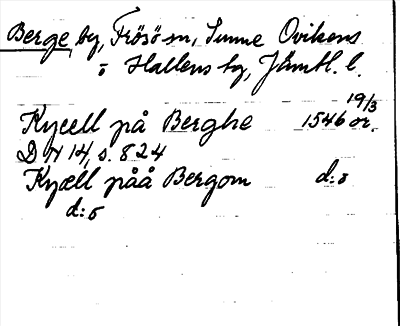 Berge, by, Frösö sn, Sunne Ovikens
o Hallens tg, Jämtl. l.
Kycell på Berghe 1546 19/3 or.
DN 14, s. 824
Kyæll påå Bergom d:o
d:o